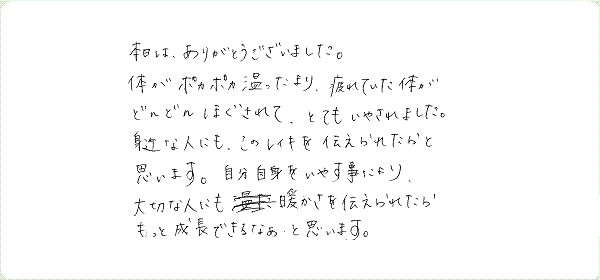 本日は、ありがとうございました。
体がポカポカ温ったより、疲れていた体が
どんどんほぐされて、とてもいやされました。
身近な人にも、このレイキを伝えられたらと
思います。自分自身をいやす事により、
大切な人にも 暖かさを伝えられたら
もっと成長できるなぁ と思います。